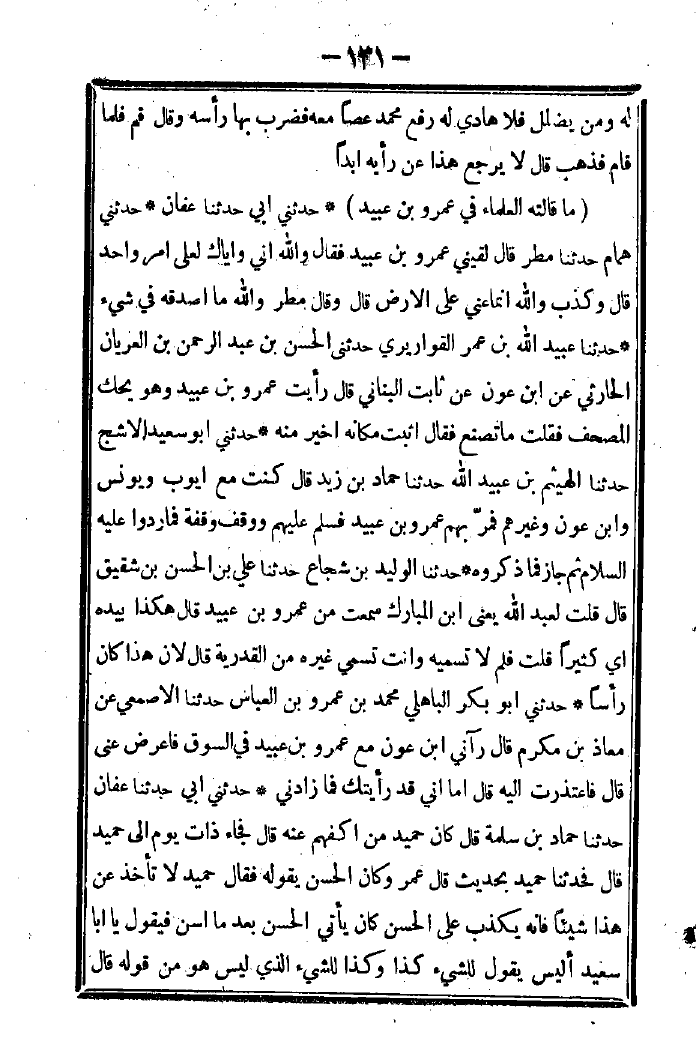 — ١٣١ —
له ومن يضلل فلا هادي له رفع محمد عصاً معه فضرب بها رأسه وقال قم فلما
قام فذهب قال لا يرجع هذا عن رأيه ابداً
( ما قالته العلماء في عمرو بن عبيد ) * حدثني ابي حدثنا عفان * حدثني
همام حدثنا مطر قال لقيني عمرو بن عبيد فقال والله اني واياك لعلى امر واحد
قال وكذب والله انما عنى على الارض قال وقال مطر والله ما اصدقه في شيء
* حدثنا عبيد الله بن عمر القواريري حدثنى الحسن بن عبد الرحمن بن العريان
الحارثي عن ابن عون عن ثابت البناني قال رأيت عمرو بن عبيد وهو يحك
المصحف فقلت ما تصنع فقال اثبت مكانه اخير منه * حدثني ابو سعيد الاشج
حدثنا الهيثم بن عبيد الله حدثنا حماد بن زيد قال كنت مع ايوب ويونس
وابن عون وغيرهم فمرّ بهم عمرو بن عبيد فسلم عليهم ووقف وقفة فما ردوا عليه
السلام ثم جاز فما ذكروه * حدثنا الوليد بن شجاع حدثنا علي بن الحسن بن شقيق
قال قلت لعبد الله يعنى ابن المبارك سمعت من عمرو بن عبيد قال هكذا بيده
اي كثيراً قلت فلم لا تسميه وانت تسمي غيره من القدرية قال لان هذا كان
رأساً * حدثني ابو بكر الباهلي محمد بن عمرو بن العباس حدثنا الاصمعي عن
معاذ بن مكرم قال رآني ابن عون مع عمرو بن عبيد في السوق فاعرض عنى
قال فاعتذرت اليه قال اما اني قد رأيتك فما زادني * حدثني ابي حدثنا عفان
حدثنا حماد بن سلمة قال كان حميد من اكفهم عنه قال فجاء ذات يوم الى حميد
قال فحدثنا حميد بحديث قال عمر وكان الحسن يقوله فقال حميد لا تأخذ عن
هذا شيئاً فانه يكذب على الحسن كان يأتي الحسن بعد ما اسن فيقول يا ابا
سعيد أليس يقول للشيء كذا وكذا للشيء الذي ليس هو من قوله قال